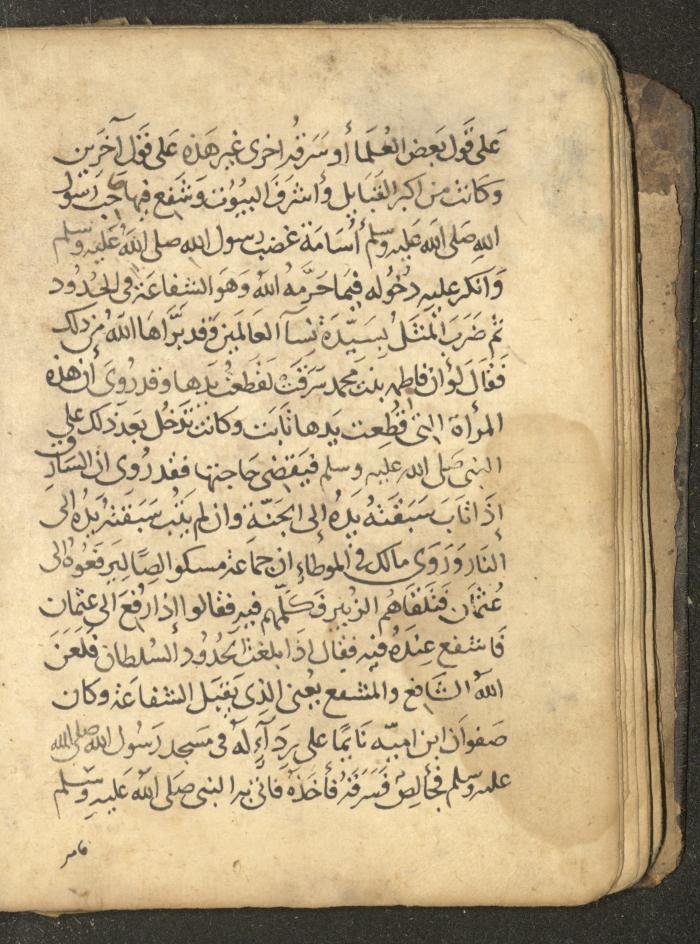 على قول بعض العلما أو سرقه اخرى غير هذه على قول آخرين
وكانت من اكبر القبايل وأشرف البيوت وشفع فيها حب رسول
الله صلى الله عليه وسلم أسامة غضب رسول الله صلى الله عليه وسلم
وانكر عليه دخوله فيما حرمه الله وهو الشفاعة في الحدود
ثم ضرب المثل بسيدة نسآ العالمين وقد برأها الله من ذلك
فقال لو أن فاطمه بنت محمد سرقت لقطعت يدها وقد روى أن هذه
المرأة التى قطعت يدها تابت وكانت تدخل بعد ذلك على
النبى صلى الله عليه وسلم فيقضى حاجتها فقد روى ان السارق
إذا تاب سبقته يده إلى الجنة وان لم يتب سبقته يده الى
النار وروى مالك في الموطاء ان جماعة مسكوا لصا ليرفعوه الى
عثمان فتلقاهم الزبير فكلمهم فيه فقالوا إذا رفع الى عثمان
فاشفع عنده فيه فقال اذا بلغت الحدود السلطان فلعن
الله الشافع والمشفع يعنى الذى يقبل الشفاعة وكان
صفوان ابن اميه نايما على ردآء له في مسجد رسول الله صلى الله
عليه وسلم فجا لص فسرقه فأخذه فاتى به النبى صلى الله عليه وسلم